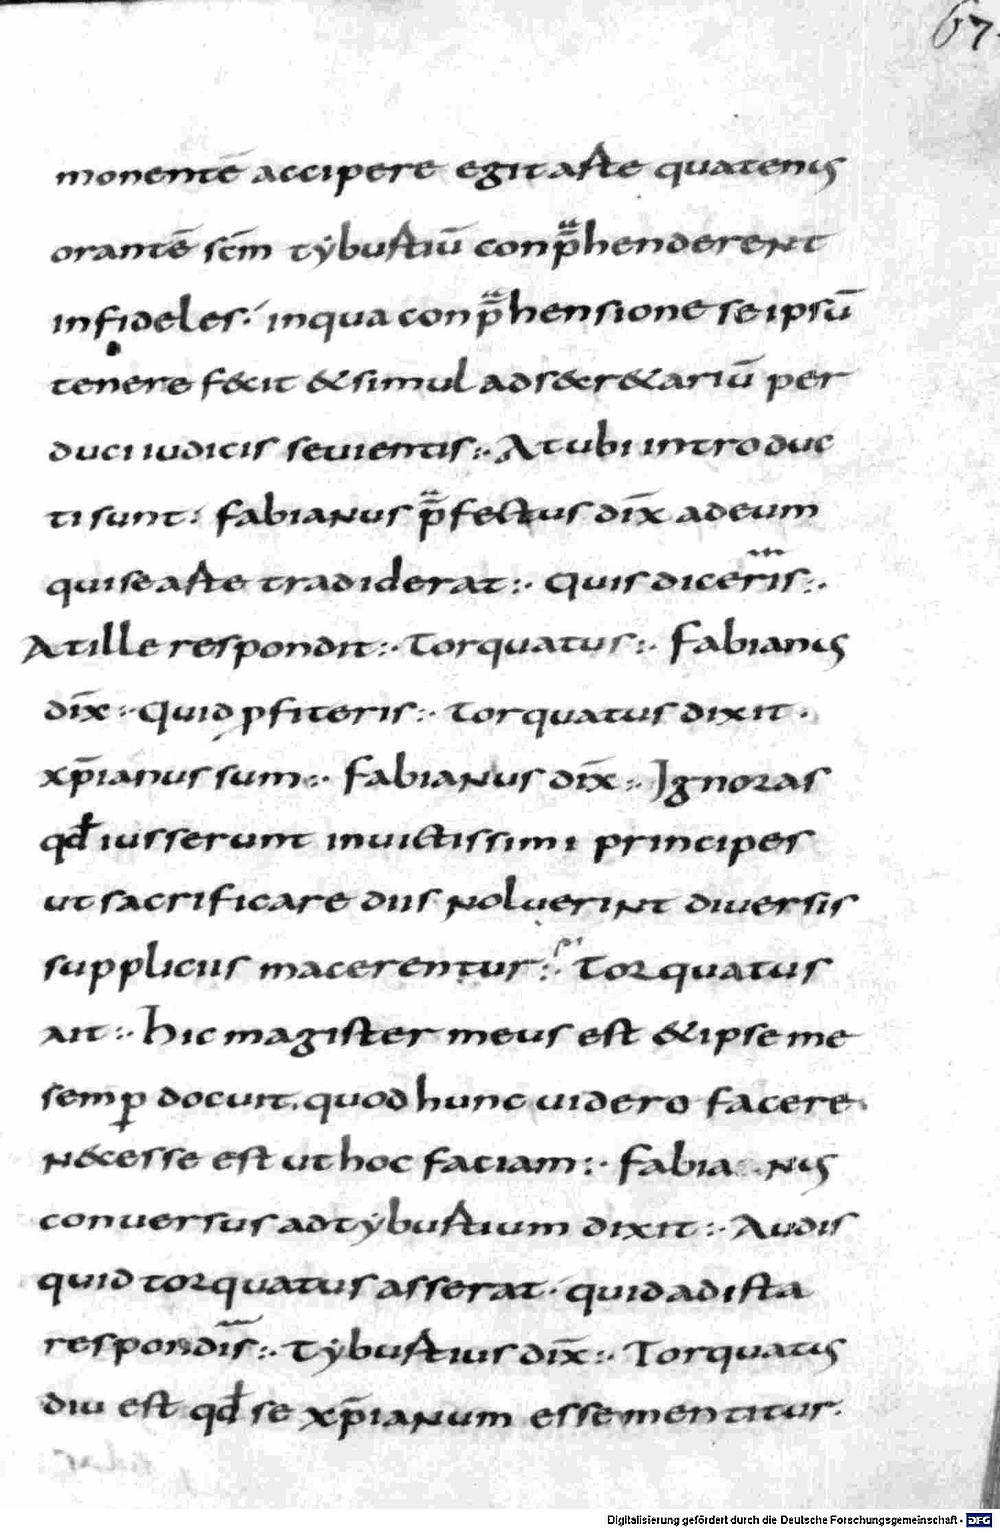 67.
monentē accipere egit aste quatenus
orantē scm̄ tyburtiū conp̄henderent
infideles. in qua conp̄hensione se ipsū
tenere fecit & simul ad s&cr&ariū per
duci iudicis seuientis:· At ubi introduc
ti sunt: fabianus p̄fectus dix̄ ad eum
qui se aste tradiderat:· Quis diceris:·
At ille respondit:· Torquatus:· Fabianus
dix̄:· Quid ꝓfiteris:· Torquatus dixit·
xp̄ianus sum:· Fabianus dix̄:· Ignoras
qđ iusserunt inuictissimi principes
ut sacrificare diis noluerint diuersis
suppliciis macerentur:· Torquatus
ait:· hic magister meus est & ipse me
semꝑ docuit. quod hunc uidero facere
n&cesse est ut hoc faciam:· Fabianus
conuersus ad tyburtium dixit:· Audis
quid torquatus asserat· quid ad ista
respondis̄:· Tyburtius dix̄:· Torquatus
diu est qđ se xp̄ianum esse mentitur.
Digitalisierung gefördert durch die Deutsche Forschungsgemeinschaft - DFG